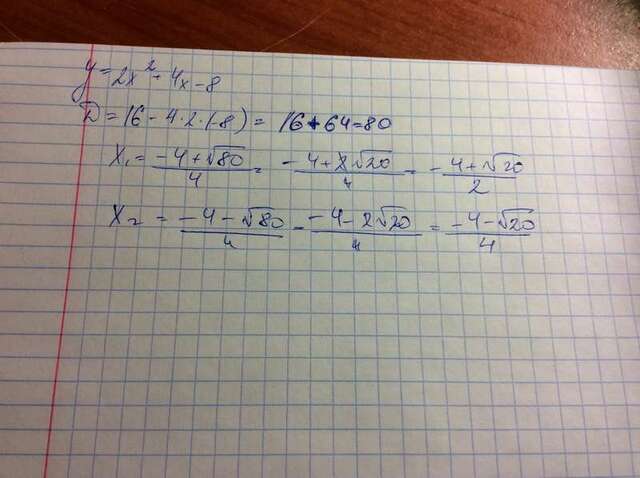 y = 2x² + 4x - 8
D = 16 - 4·2·(-8) = 16 + 64 = 80
X₁ = (-4 + √80)/4 = (-4 + 2√20)/4 = (-4 + √20)/2
X₂ = (-4 - √80)/4 = (-4 - 2√20)/4 = (-4 - √20)/4